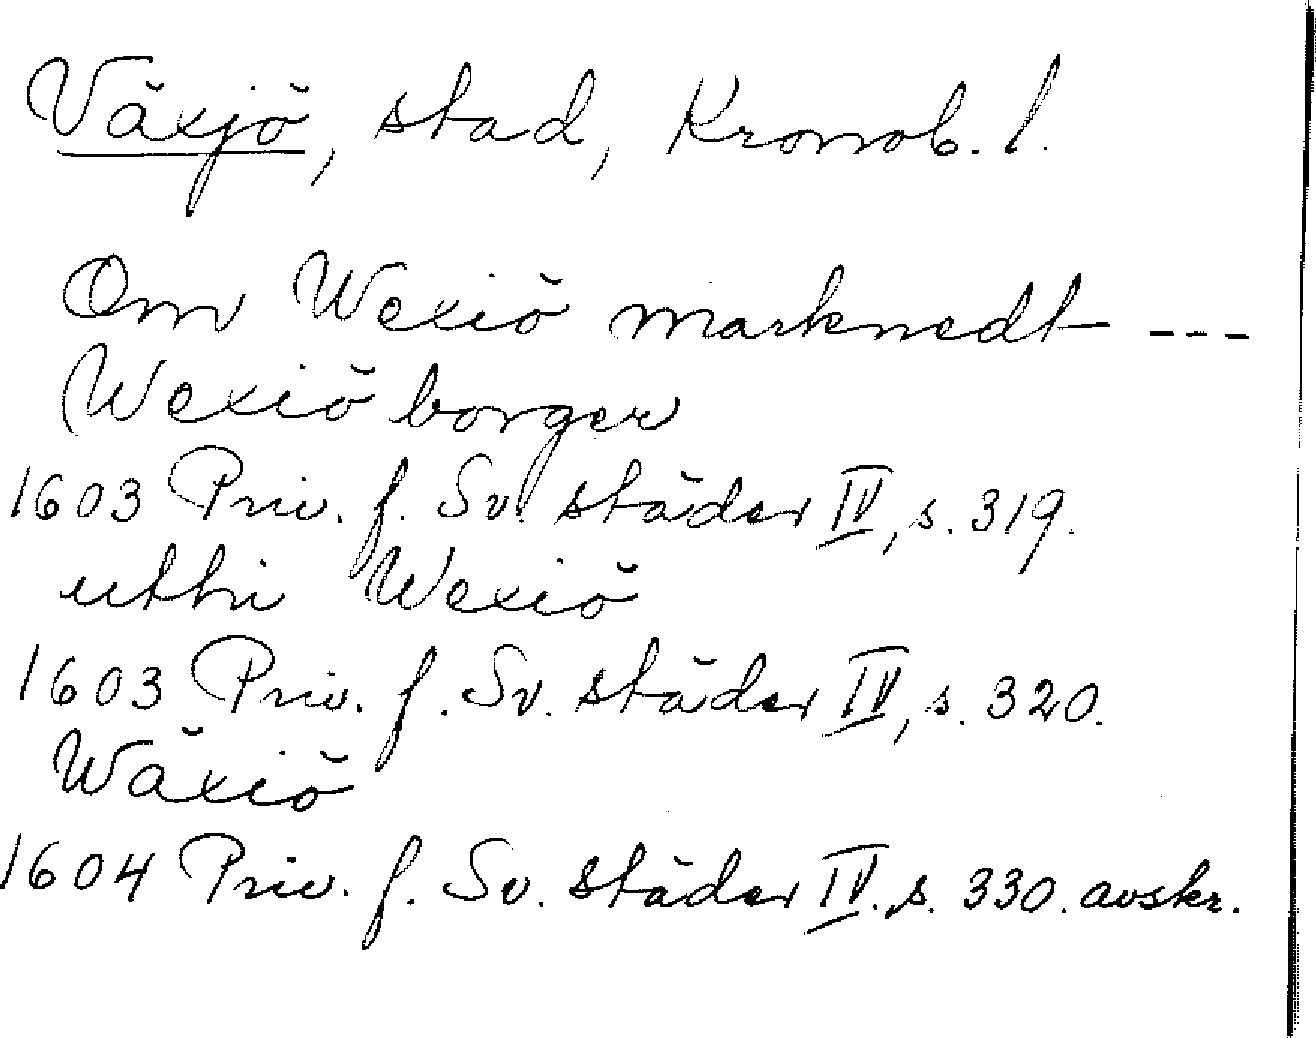 Växjö, stad, Kronob. l.
Om Wexiö marknedt ---
Wexiö borger
1603 Priv. f. Sv. städer IV, s. 319.
utthi Wexiö
1603 Priv. f. Sv. städer IV, s. 320.
Wäxiö
1604 Priv. f. Sv. städer IV. s. 330. avskr.